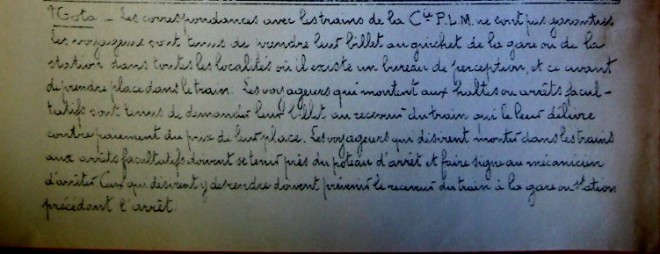 Nota _ Les correspondances avec les trains de la Cie P.L.M. ne sont pas garanties
les voyageurs sont tenus de prendre leur billet au guichet de la gare ou de la
station dans toutes les localités où il existe un bureau de perception, et ce avant
de prendre place dans le train. Les voyageurs qui montent aux haltes ou arrêts facul-
tatifs sont tenus de demander leur billet au receveur du train qui le leur délivre
contre paiement du prix de leur place. Les voyageurs qui désirent monter dans les trains
aux arrêts facultatifs doivent se tenir près du poteau d'arrêt et faire signe au mécanicien
d'arrêter. Ceux qui désirent y descendre doivent prévenir le receveur du train à la gare ou station
précédant l'arrêt.